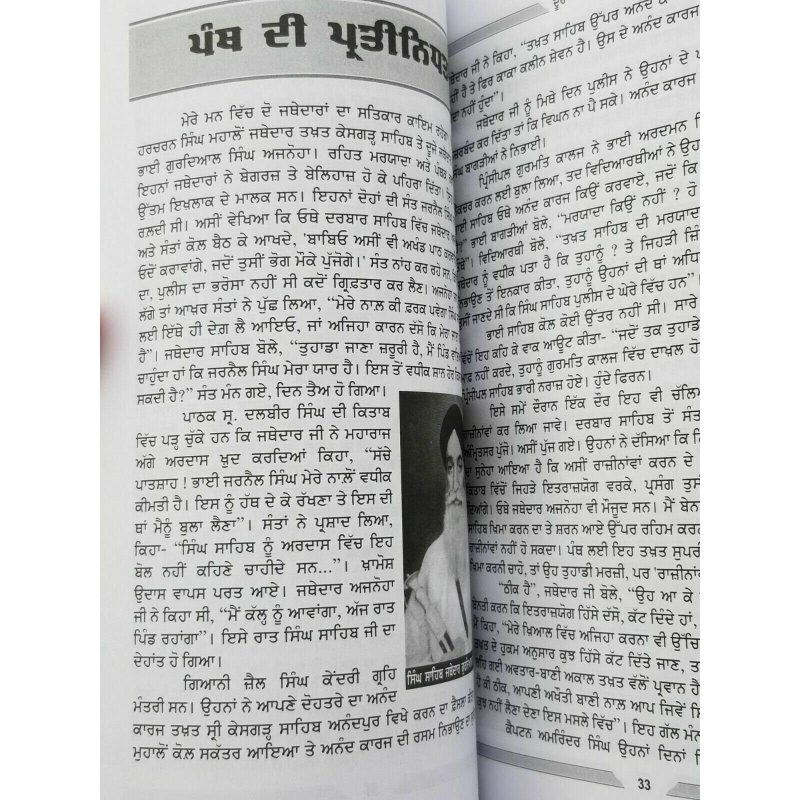 ਪੰਥ ਦੀ ਪ੍ਰਤੀਨਿਧਤ
ਮੇਰੇ ਮਨ ਵਿੱਚ ਦੋ ਜਥੇਦਾਰਾਂ ਦਾ ਸਤਿਕਾਰ ਕਾਇਮ
ਹਰਚਰਨ ਸਿੰਘ ਮਹਾਲੋਂ ਜਥੇਦਾਰ ਤਖ਼ਤ ਕੇਸਗੜ੍ਹ ਸਾਹਿਬ ਤੇ ਦੂਜੇ
ਭਾਈ ਗੁਰਦਿਆਲ ਸਿੰਘ ਅਜਨੋਹਾ। ਰਹਿਤ ਮਰਯਾਦਾ ਅਤੇ
ਇਹਨਾਂ ਜਥੇਦਾਰਾਂ ਨੇ ਬੇਗਰਜ਼ ਤੇ ਬੇਲਿਹਾਜ਼ ਹੋ ਕੇ ਪਹਿਰਾ ਦਿੱਤਾ।
ਉੱਤਮ ਇਖਲਾਕ ਦੇ ਮਾਲਕ ਸਨ। ਇਹਨਾਂ ਦੋਹਾਂ ਦੀ ਸੰਤ ਜਰਨੈਲ
ਰਲਦੀ ਸੀ। ਅਸੀਂ ਵੇਖਿਆ ਕਿ ਓਥੇ ਦਰਬਾਰ ਸਾਹਿਬ ਵਿੱਚ ਜਥੇਦਾਰ
ਅਤੇ ਸੰਤਾਂ ਕੋਲ ਬੈਠ ਕੇ ਆਖਦੇ, 'ਬਾਬਿਓ ਅਸੀਂ ਵੀ ਅਖੰਡ ਪਾਠ
ਓਦੋਂ ਕਰਾਵਾਂਗੇ, ਜਦੋਂ ਤੁਸੀਂ ਭੋਗ ਮੌਕੇ ਪੁੱਜੋਗੇ।' ਸੰਤ ਨਾਂਹ ਕਰ ਰਹੇ ਸਨ,
ਦਾ, ਪੁਲੀਸ ਦਾ ਭਰੋਸਾ ਨਹੀਂ ਸੀ ਕਦੋਂ ਗ੍ਰਿਫ਼ਤਾਰ ਕਰ ਲੈਣ। ਅਜਨੋਹਾ
ਲੱਗੇ ਤਾਂ ਆਖ਼ਰ ਸੰਤਾਂ ਨੇ ਪੁੱਛ ਲਿਆ, “ਮੇਰੇ ਨਾਲ ਕੀ ਫ਼ਰਕ ਪਵੇਗਾ
ਲਈ ਇੱਥੇ ਹੀ ਦੇਗ਼ ਲੈ ਆਇਓ, ਜਾਂ ਅਜਿਹਾ ਕਾਰਨ ਦੱਸੋ ਕਿ ਮੇਰਾ
ਹੈ”। ਜਥੇਦਾਰ ਸਾਹਿਬ ਬੋਲੇ, “ਤੁਹਾਡਾ ਜਾਣਾ ਜ਼ਰੂਰੀ ਹੈ, ਮੈਂ ਪਿੰਡ
ਚਾਹੁੰਦਾ ਹਾਂ ਕਿ ਜਰਨੈਲ ਸਿੰਘ ਮੇਰਾ ਯਾਰ ਹੈ। ਇਸ ਤੋਂ ਵਧੀਕ ਸ਼ਾਨ ਹੋਰ
ਸਕਦੀ ਹੈ?” ਸੰਤ ਮੰਨ ਗਏ, ਦਿਨ ਤੈਅ ਹੋ ਗਿਆ।
ਪਾਠਕ ਸ੍ਰ. ਦਲਬੀਰ ਸਿੰਘ ਦੀ ਕਿਤਾਬ
ਵਿੱਚ ਪੜ੍ਹ ਚੁੱਕੇ ਹਨ ਕਿ ਜਥੇਦਾਰ ਜੀ ਨੇ ਮਹਾਰਾਜ
ਅੱਗੇ ਅਰਦਾਸ ਖ਼ੁਦ ਕਰਦਿਆਂ ਕਿਹਾ, “ਸੱਚੇ
ਪਾਤਸ਼ਾਹ ! ਭਾਈ ਜਰਨੈਲ ਸਿੰਘ ਮੇਰੇ ਨਾਲੋਂ ਵਧੀਕ
ਕੀਮਤੀ ਹੈ। ਇਸ ਨੂੰ ਹੱਥ ਦੇ ਕੇ ਰੱਖਣਾ ਤੇ ਇਸ ਦੀ
ਥਾਂ ਮੈਨੂੰ ਬੁਲਾ ਲੈਣਾ”। ਸੰਤਾਂ ਨੇ ਪ੍ਰਸ਼ਾਦ ਲਿਆ,
ਕਿਹਾ- “ਸਿੰਘ ਸਾਹਿਬ ਨੂੰ ਅਰਦਾਸ ਵਿੱਚ ਇਹ
ਬੋਲ ਨਹੀਂ ਕਹਿਣੇ ਚਾਹੀਦੇ ਸਨ...”। ਖ਼ਾਮੋਸ਼
ਉਦਾਸ ਵਾਪਸ ਪਰਤ ਆਏ। ਜਥੇਦਾਰ ਅਜਨੋਹਾ
ਜੀ ਨੇ ਕਿਹਾ ਸੀ, “ਮੈਂ ਕੱਲ੍ਹ ਨੂੰ ਆਵਾਂਗਾ, ਅੱਜ ਰਾਤ
ਪਿੰਡ ਰਹਾਂਗਾ”। ਇਸੇ ਰਾਤ ਸਿੰਘ ਸਾਹਿਬ ਜੀ ਦਾ
ਦੇਹਾਂਤ ਹੋ ਗਿਆ।
ਸਿੰਘ ਸਾਹਿਬ ਜਥੇਦਾਰ
ਗਿਆਨੀ ਜ਼ੈਲ ਸਿੰਘ ਕੇਂਦਰੀ ਗ੍ਰਹਿ
ਮੰਤਰੀ ਸਨ। ਉਹਨਾਂ ਨੇ ਆਪਣੇ ਦੋਹਤਰੇ ਦਾ ਅਨੰਦ
ਕਾਰਜ ਤਖ਼ਤ ਸ੍ਰੀ ਕੇਸਗੜ੍ਹ ਸਾਹਿਬ ਅਨੰਦਪੁਰ ਵਿਖੇ ਕਰਨ ਦਾ ਫ਼ੈਸਲਾ
ਮੁਹਾਲੋਂ ਕੋਲ ਸਕੱਤਰ ਆਇਆ ਤੇ ਅਨੰਦ ਕਾਰਜ ਦੀ ਰਸਮ ਨਿਭਾਉਣ ਦਾ
ਜਥੇਦਾਰ ਜੀ ਨੇ ਕਿਹਾ, “ਤਖ਼ਤ ਸਾਹਿਬ ਉੱਪਰ ਅਨੰਦ ਕਾਰਜ
ਹੈ ਤੇ ਫਿਰ ਕਾਕਾ ਕਲੀਨ ਸ਼ੇਵਨ ਹੈ। ਉਸ ਦੇ ਅਨੰਦ ਕਾਰਜ
ਦਾ ਨਹੀਂ ਹੁੰਦਾ”।
ਜਥੇਦਾਰ ਜੀ ਨੂੰ ਮਿਥੇ ਦਿਨ ਪੁਲੀਸ ਨੇ ਉਹਨਾਂ ਦੇ
ਕਰ ਦਿੱਤਾ ਤਾਂ ਕਿ ਵਿਘਨ ਨਾ ਪੈ ਸਕੇ। ਅਨੰਦ ਕਾਰਜ
ਸਿੰਘ ਬਾਗੜੀਆਂ ਨੇ ਨਿਭਾਈ।
ਪ੍ਰਿੰਸੀਪਲ ਗੁਰਮਤਿ ਕਾਲਜ ਨੇ ਭਾਈ ਅਰਦਮਨ
ਕਰਨ ਲਈ ਬੁਲਾ ਲਿਆ, ਤਦ ਵਿਦਿਆਰਥੀਆਂ ਨੇ
ਸਾਹਿਬ ਓਥੇ ਅਨੰਦ ਕਾਰਜ ਕਿਉਂ ਕਰਵਾਏ, ਜਦੋਂ ਕਿ
ਭਾਈ ਬਾਗੜੀਆਂ ਬੋਲੇ, “ਮਰਯਾਦਾ ਕਿਉਂ ਨਹੀਂ ? ਹੋ
ਵਿਦਿਆਰਥੀ ਬੋਲੇ, “ਤਖ਼ਤ ਸਾਹਿਬ ਦੀ ਮਰਯਾਦਾ
ਜਥੇਦਾਰ ਨੂੰ ਵਧੀਕ ਪਤਾ ਹੈ ਕਿ ਤੁਹਾਨੂੰ ? ਤੇ ਜਿਹੜੀ
ਨਿਭਾਉਣ ਤੋਂ ਇਨਕਾਰ ਕੀਤਾ, ਤੁਹਾਨੂੰ ਉਹਨਾਂ ਦੀ ਥਾਂ
ਜਾਣਦੇ ਸੀ ਕਿ ਸਿੰਘ ਸਾਹਿਬ ਪੁਲੀਸ ਦੇ ਘੇਰੇ ਵਿੱਚ ਹਨ”।
ਭਾਈ ਸਾਹਿਬ ਕੋਲ ਕੋਈ ਉੱਤਰ ਨਹੀਂ ਸੀ। ਸਾਰੇ
ਵਿੱਚੋਂ ਇਹ ਕਹਿ ਕੇ ਵਾਕ ਆਊਟ ਕੀਤਾ- “ਜਦੋਂ ਤਕ ਤੁਹਾਡੇ
ਨਹੀਂ ਕਰਦੇ, ਤੁਹਾਨੂੰ ਗੁਰਮਤਿ ਕਾਲਜ ਵਿੱਚ ਦਾਖ਼ਲ ਹੋ
ਪ੍ਰਿੰਸੀਪਲ ਸਾਹਿਬ ਭਾਰੀ ਨਰਾਜ਼ ਹੋਏ। ਹੁੰਦੇ ਫਿਰਨ।
ਇਸੇ ਸਮੇਂ ਦੌਰਾਨ ਇੱਕ ਦੌਰ ਇਹ ਵੀ ਚੱਲਿ
ਰਾਜ਼ੀਨਾਂਵਾਂ ਕਰ ਲਿਆ ਜਾਵੇ। ਦਰਬਾਰ ਸਾਹਿਬ ਤੋਂ ਸੰਤ
ਅੰਮ੍ਰਿਤਸਰ ਪੁੱਜੋ। ਅਸੀਂ ਪੁੱਜ ਗਏ। ਉਹਨਾਂ ਨੇ ਦੱਸਿਆ ਕਿ
ਦਾ ਸੁਨੇਹਾ ਆਇਆ ਹੈ ਕਿ ਅਸੀਂ ਰਾਜ਼ੀਨਾਂਵਾਂ ਕਰਨ ਦੇ
ਕਿਤਾਬ ਵਿੱਚੋਂ ਜਿਹੜੇ ਇਤਰਾਜ਼ਯੋਗ ਵਰਕੇ, ਪ੍ਰਸੰਗ ਤੁਸ
ਦੇਣਗੇ। ਓਥੇ ਜਥੇਦਾਰ ਅਜਨੋਹਾਂ ਵੀ ਮੌਜੂਦ ਸਨ। ਮੈਂ ਬੇਨ
ਸਾਹਿਬ ਖਿਮਾ ਕਰਨ ਦਾ ਤੇ ਸ਼ਰਨ ਆਏ ਉੱਪਰ ਰਹਿਮ ਕਰਨ
ਰਾਜ਼ੀਨਾਂਵਾਂ ਨਹੀਂ ਹੋ ਸਕਦਾ। ਪੰਥ ਲਈ ਇਹ ਤਖ਼ਤ ਸੁਪਰੀ
ਖਿਮਾ ਕਰਨੀ ਚਾਹੋ, ਤਾਂ ਉਹ ਤੁਹਾਡੀ ਮਰਜ਼ੀ, ਪਰ 'ਰਾਜ਼ੀਨਾਂ
“ਠੀਕ ਹੈ”, ਜਥੇਦਾਰ ਜੀ ਬੋਲੇ, “ਉਹ ਆ ਕੇ
ਬੇਨਤੀ ਕਰਨ ਕਿ ਇਤਰਾਜ਼ਯੋਗ ਹਿੱਸੇ ਦੱਸੋ, ਕੱਟ ਦਿੰਦੇ ਹਾਂ,
ਕਿਹਾ, “ਮੇਰੇ ਖਿਆਲ ਵਿੱਚ ਅਜਿਹਾ ਕਰਨਾ ਵੀ ਉੱਚਿ
ਦੇ ਹੁਕਮ ਅਨੁਸਾਰ ਕੁਝ ਹਿੱਸੇ ਕੱਟ ਦਿੱਤੇ ਜਾਣ, ਤ
ਗਈ ਅਵਤਾਰ-ਬਾਣੀ ਅਕਾਲ ਤਖ਼ਤ ਵੱਲੋਂ ਪ੍ਰਵਾਨ ਹੈ
ਹੈ ਕੀ ਠੀਕ, ਆਪਣੀ ਅਖੌਤੀ ਬਾਣੀ ਨਾਲ ਆਪ ਜਿਵੇਂ
ਕੁਝ ਨਹੀਂ ਲੈਣਾ ਦੇਣਾ ਇਸ ਮਸਲੇ ਵਿੱਚ”। ਇਹ ਗੱਲ ਮੰਨ
ਕੈਪਟਨ ਅਮਰਿੰਦਰ ਸਿੰਘ ਉਹਨਾਂ ਦਿਨਾਂ
33